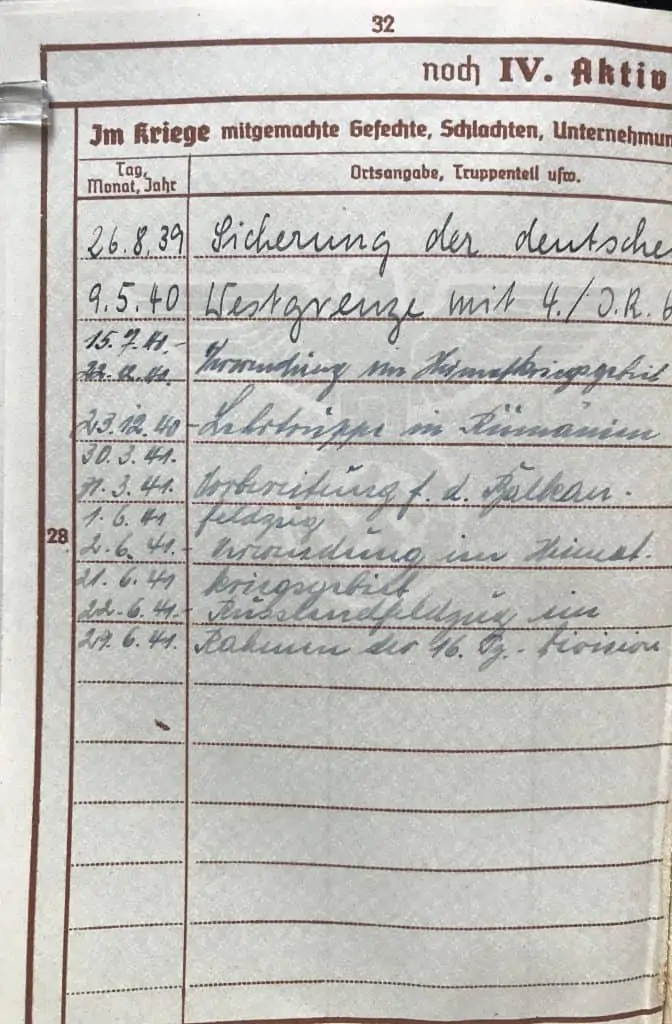 32
noch IV. Aktiv
Im Kriege mitgemachte Gefechte, Schlachten, Unternehmun
Tag, Monat, Jahr
Ortsangabe, Truppenteil usw.
26.8.39 Sicherung der deutsche
9.5.40 Westgrenze mit 4./J.R. 6
15.7.41.-
Verwendung im Heimatkriegsgebiet
23.12.40- Lehrtruppe in Rümänien
30.3.41.
31.3.41. Vorbereitung f. d. Balkan-
1.6.41 feldzug
28
2.6.41.- Verwendung im Heimat-
21.6.41 kriegsgebiet
22.6.41.- Russlandfeldzug im
29.6.41. Rahmen der 16. Pz.-Division